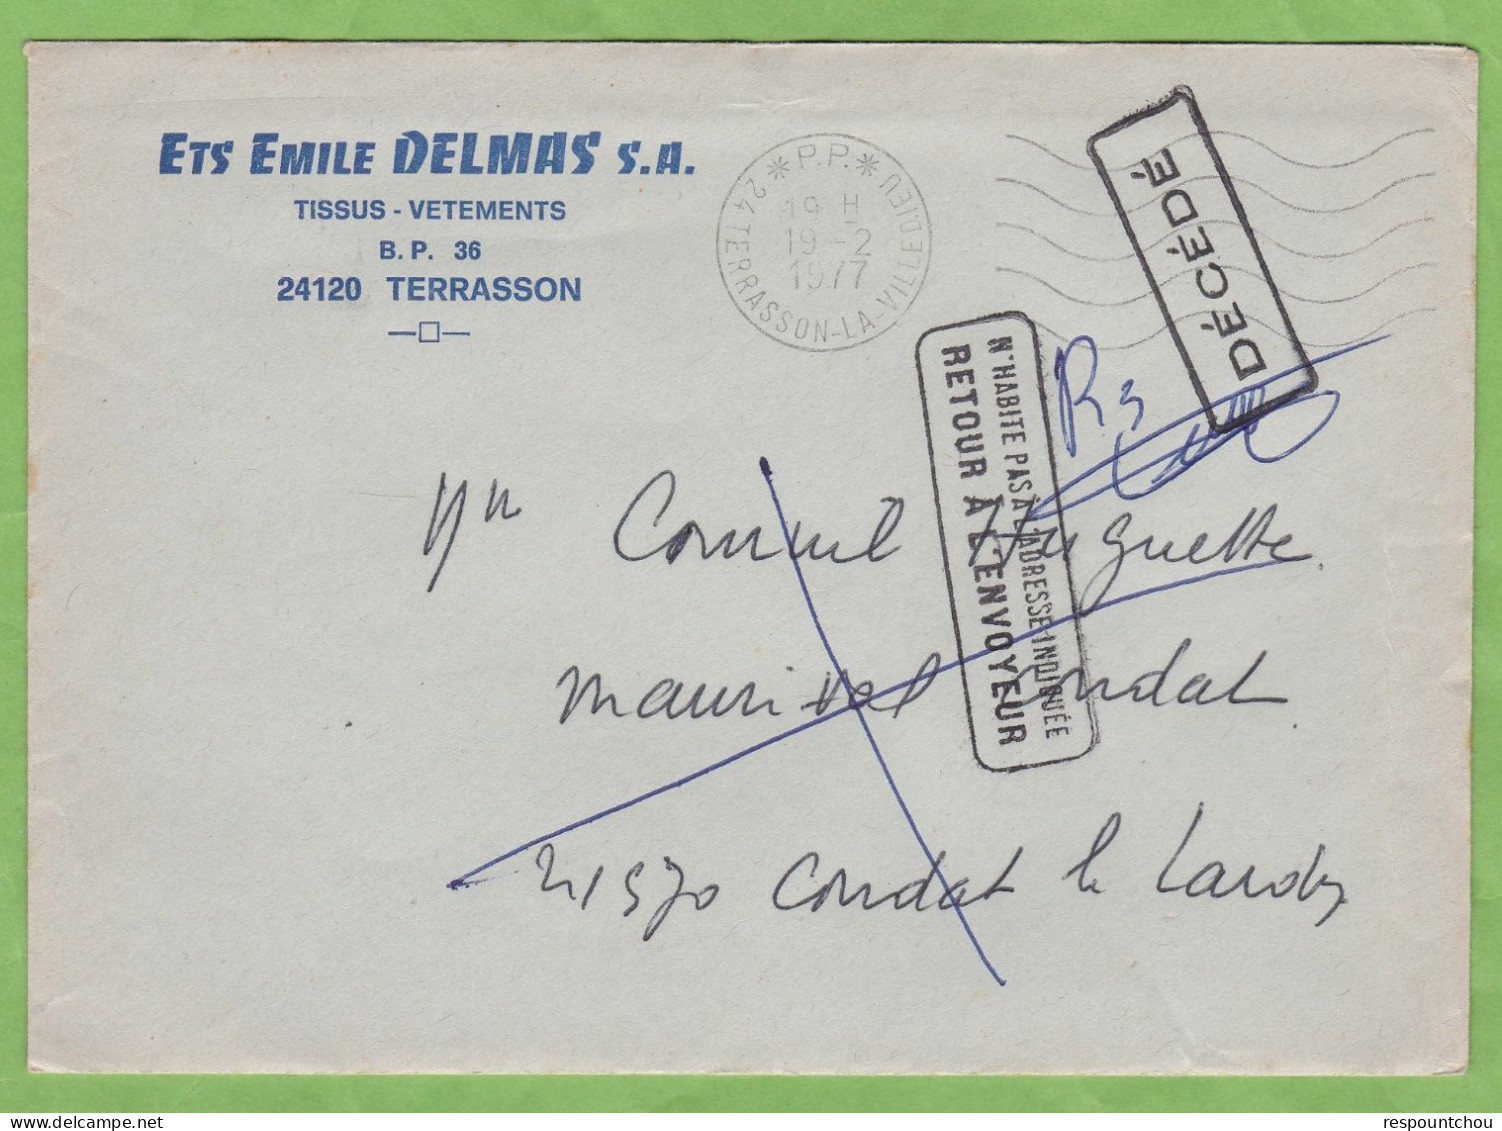 ETS EMILE DELMAS S.A.
TISSUS - VETEMENTS
B. P. 36
24120 TERRASSON
* P.P. *
24 TERRASSON-LA-VILLEDIEU
19 H
19 - 2
1977
DÉCÉDÉ
N'HABITE PAS À L'ADRESSE INDIQUÉE
RETOUR À L'ENVOYEUR
Huguette
Maurival Condat
Condat le Lardin
respountchou